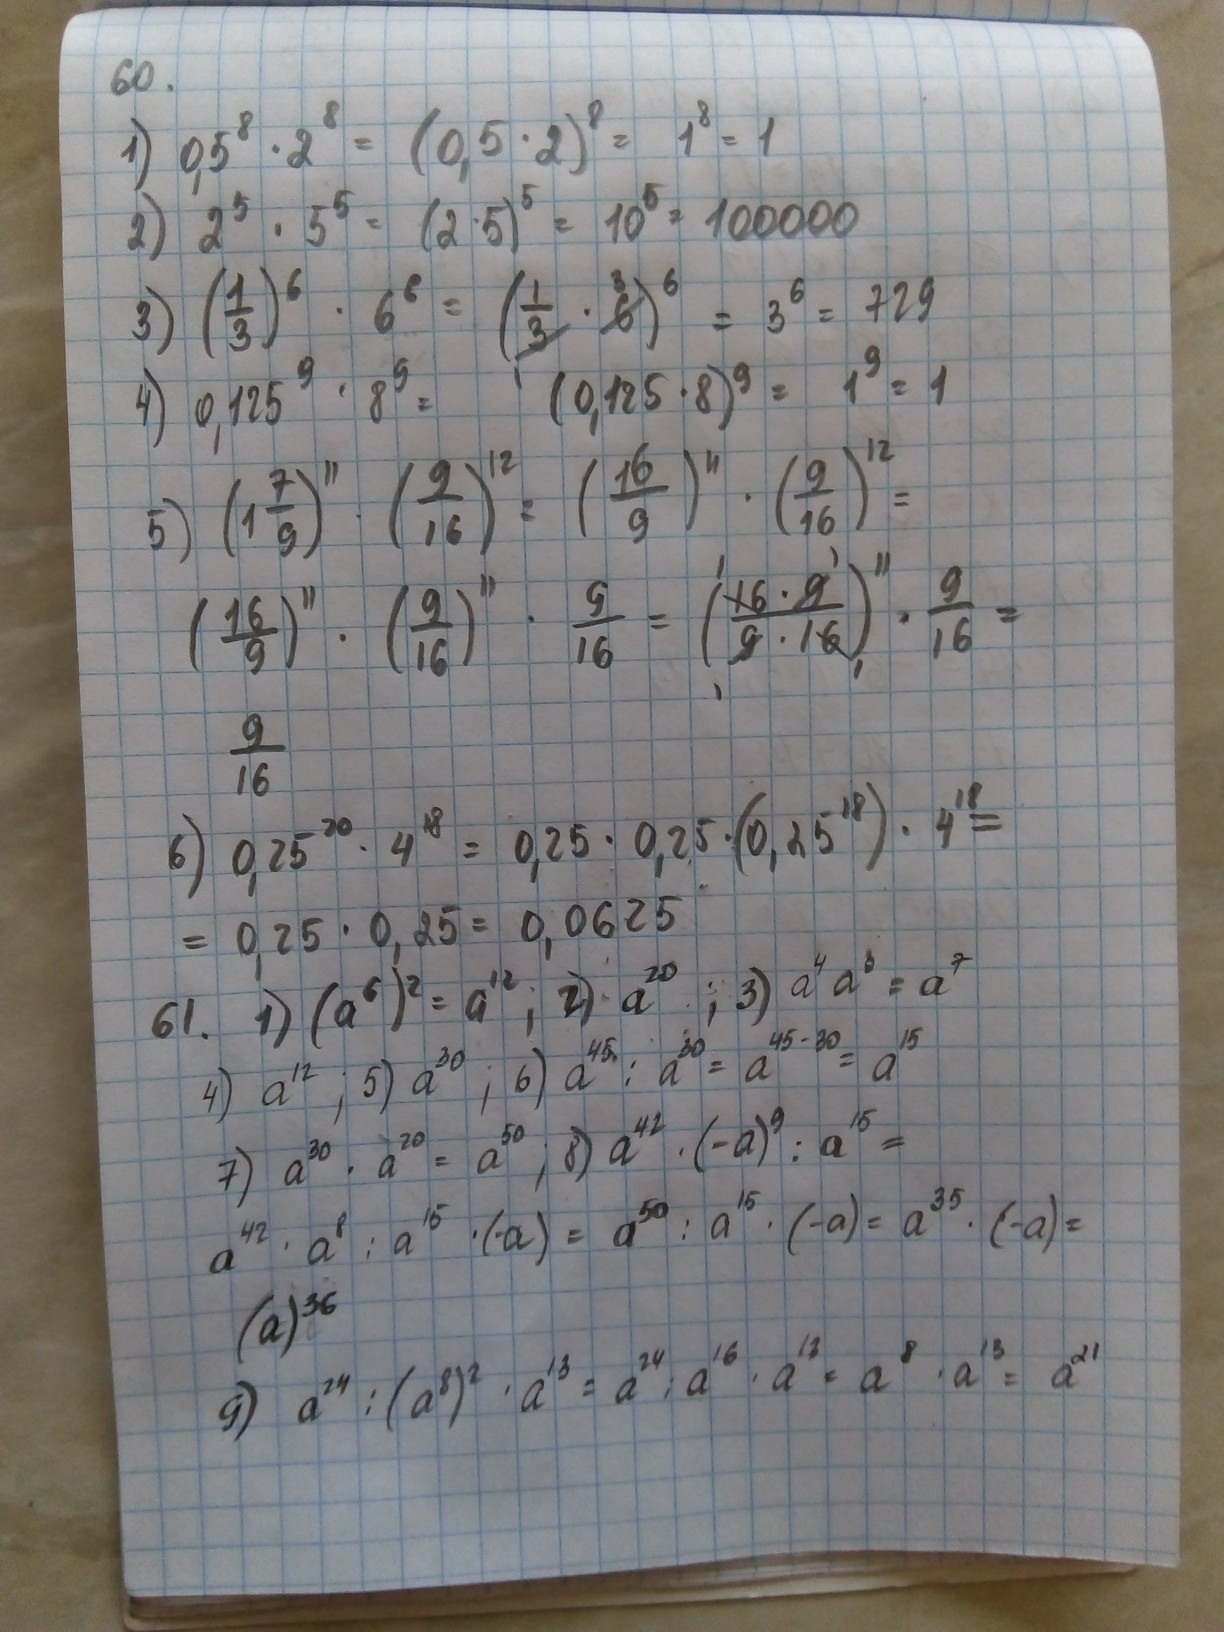 60.
1) 0,5⁸ · 2⁸ = (0,5 · 2)⁸ = 1⁸ = 1
2) 2⁵ · 5⁵ = (2·5)⁵ = 10⁵ = 100000
3) (1/3)⁶ · 6⁶ = (1/3 · 6)⁶ = 3⁶ = 729
4) 0,125⁹ · 8⁹ = (0,125 · 8)⁹ = 1⁹ = 1
5) (1 7/9)¹¹ · (9/16)¹² = (16/9)¹¹ · (9/16)¹² =
(16/9)¹¹ · (9/16)¹¹ · 9/16 = (16·9/9·16)¹¹ · 9/16 =
9/16
6) 0,25²⁰ · 4¹⁸ = 0,25 · 0,25 · (0,25¹⁸) · 4¹⁸ =
= 0,25 · 0,25 = 0,0625
61. 1) (a⁶)² = a¹² ; 2) a²⁰ ; 3) a⁴ a³ = a⁷
4) a¹² ; 5) a³⁰ ; 6) a⁴⁵ : a³⁰ = a⁴⁵⁻³⁰ = a¹⁵
7) a³⁰ · a²⁰ = a⁵⁰ ; 8) a⁴² · (-a)⁹ : a¹⁵ =
a⁴² · a⁸ : a¹⁵ · (-a) = a⁵⁰ : a¹⁵ · (-a) = a³⁵ · (-a) =
(a)³⁶
9) a²⁴ : (a⁸)² · a¹³ = a²⁴ : a¹⁶ · a¹³ = a⁸ · a¹³ = a²¹